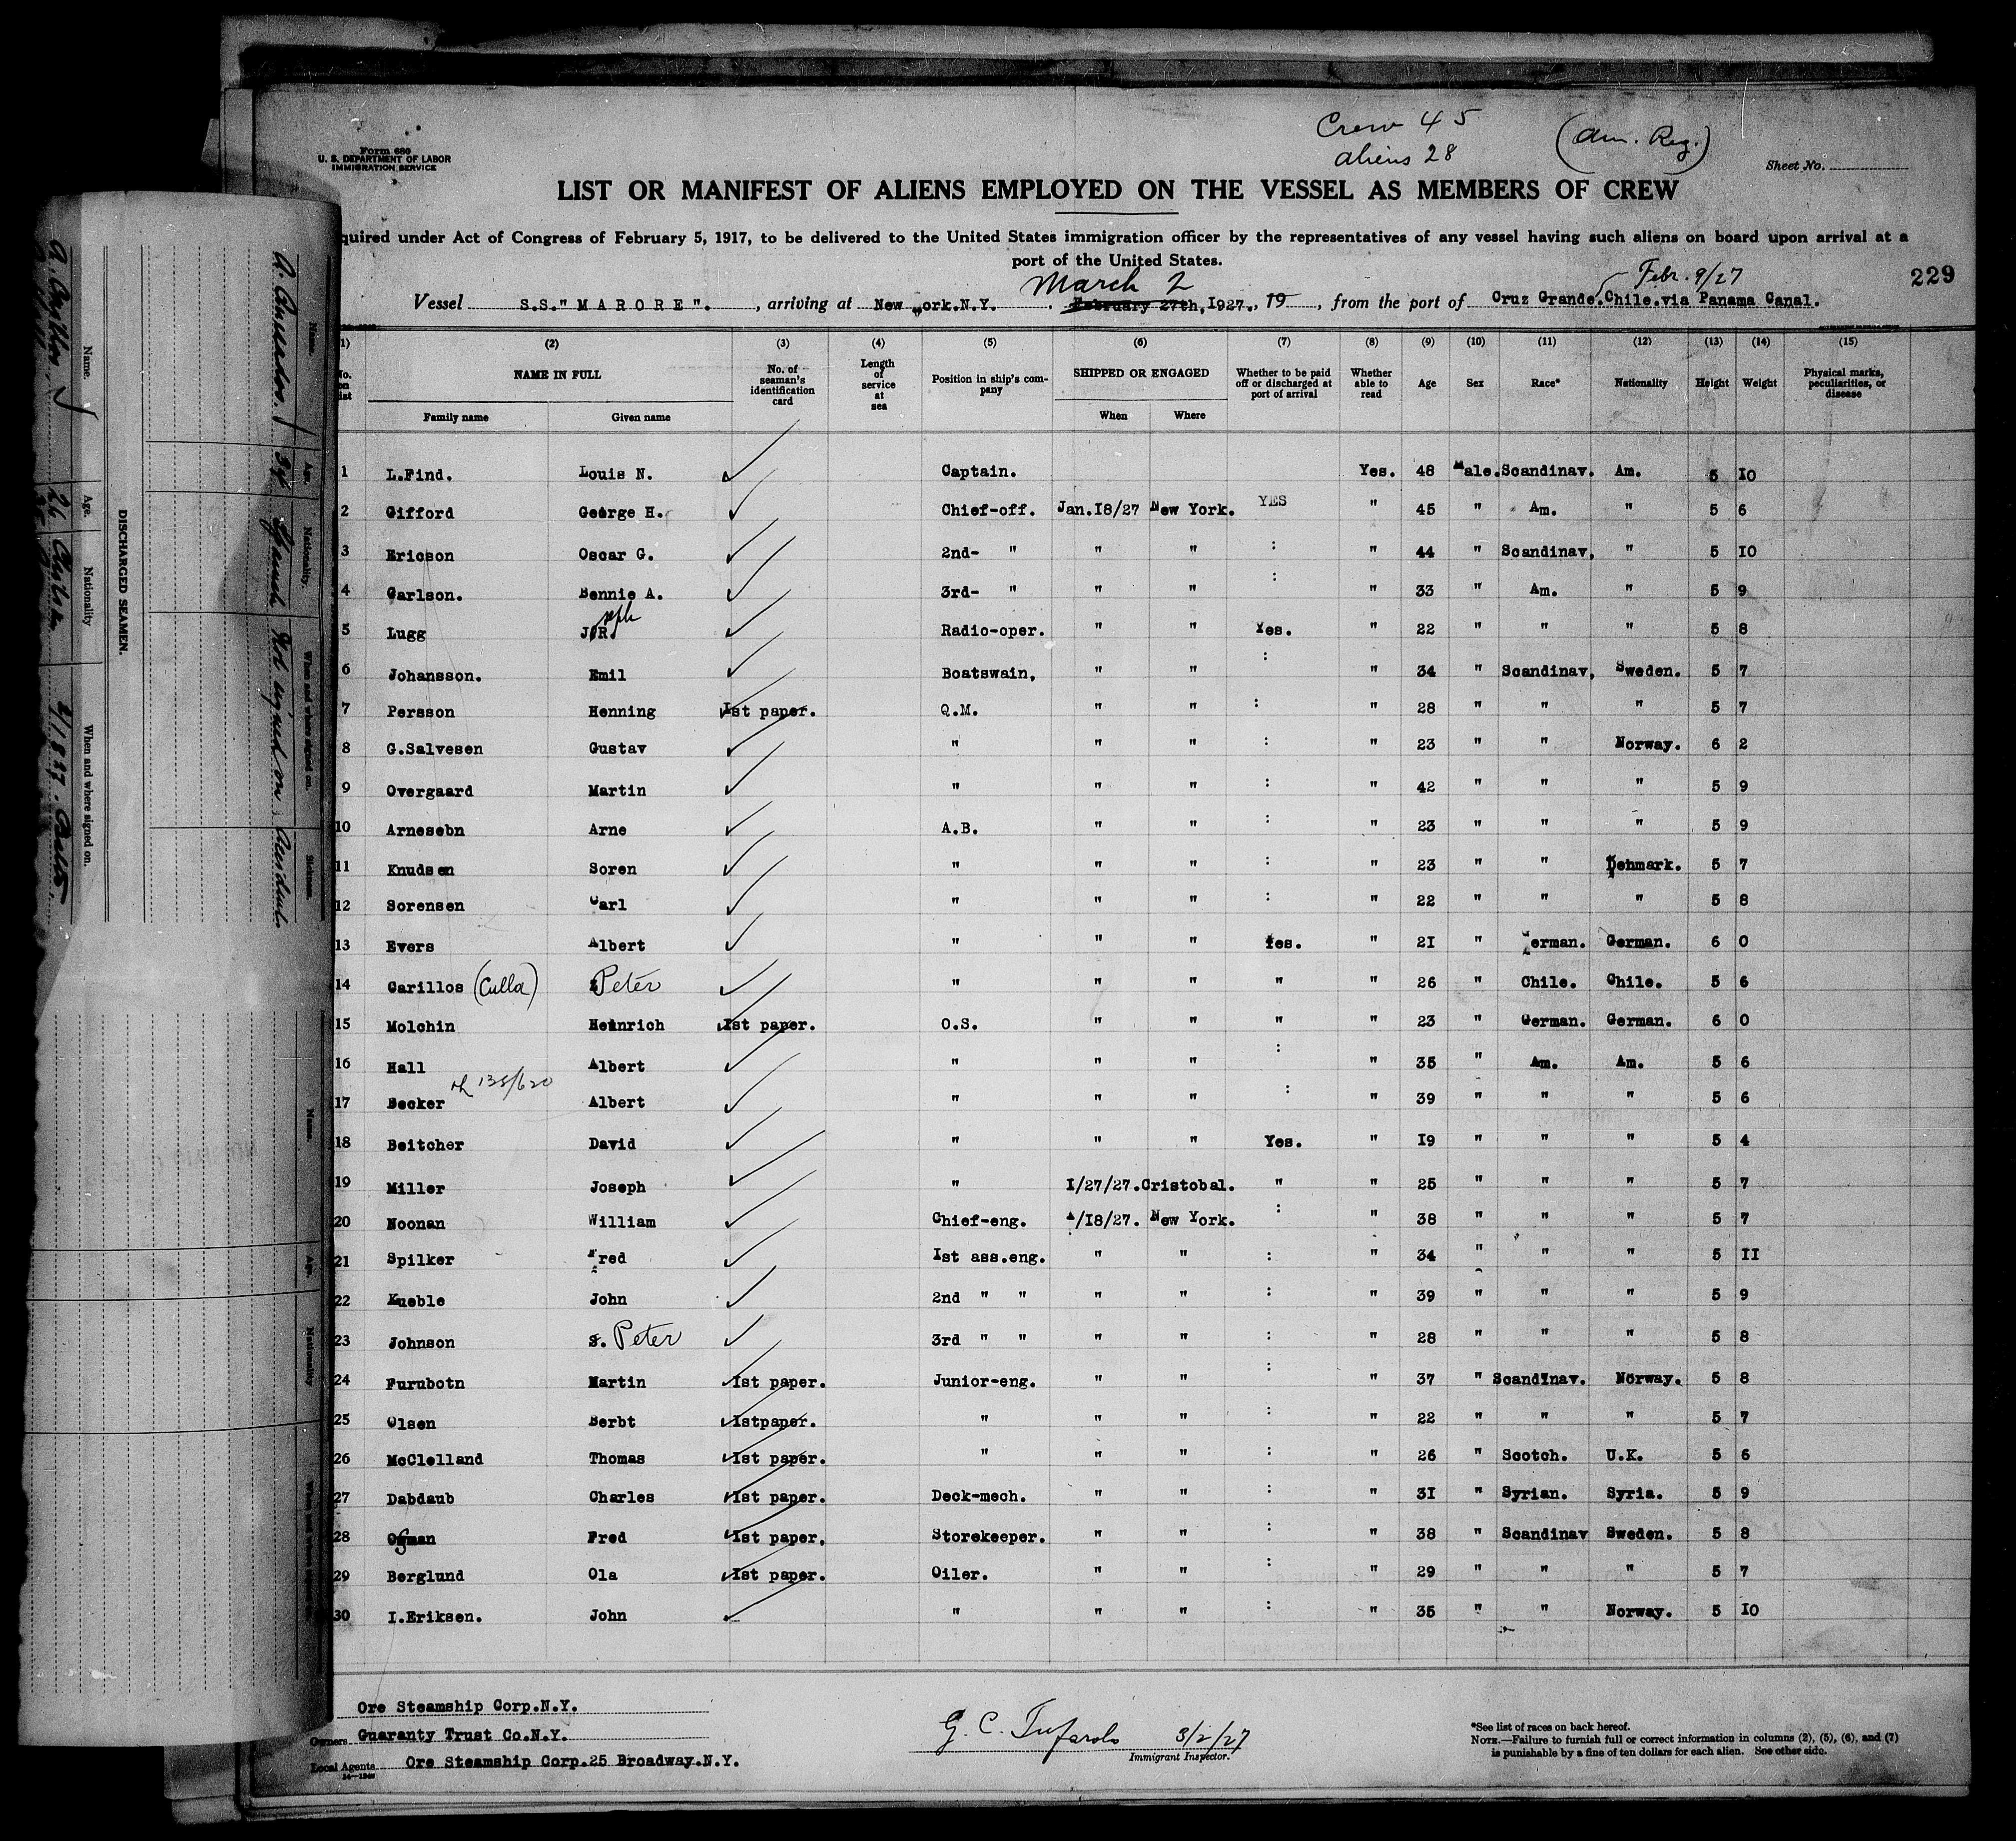 Crew 45
aliens 28
(Am. Reg.)
Form 680
U. S. DEPARTMENT OF LABOR
IMMIGRATION SERVICE
Sheet No.
LIST OR MANIFEST OF ALIENS EMPLOYED ON THE VESSEL AS MEMBERS OF CREW
quired under Act of Congress of February 5, 1917, to be delivered to the United States immigration officer by the representatives of any vessel having such aliens on board upon arrival at a
port of the United States.
March 2
Febr. 9/27
229
Vessel S.S."MARORE". , arriving at New York.N.Y. , February 27th, 1927., 19 , from the port of Cruz Grande.Chile.via Panama Canal.
(1) (2) (3) (4) (5) (6) (7) (8) (9) (10) (11) (12) (13) (14) (15)
No. on list NAME IN FULL No. of seaman's identification card Length of service at sea Position in ship's company SHIPPED OR ENGAGED Whether to be paid off or discharged at port of arrival Whether able to read Age Sex Race* Nationality Height Weight Physical marks, peculiarities, or disease
Family name Given name When Where
1 L.Find. Louis N. Captain. Yes. 48 Male. Scandinav. Am. 5 10
2 Gifford George H. Chief-off. Jan.18/27 New York. YES " 45 " Am. " 5 6
3 Ericson Oscar G. 2nd- " " " : " 44 " Scandinav, " 5 10
4 Carlson. Bennie A. 3rd- " " " : " 33 " Am. " 5 9
5 Lugg J.R. seph Radio-oper. " " Yes. " 22 " " " 5 8
6 Johansson. Emil Boatswain, " " : " 34 " Scandinav, Sweden. 5 7
7 Persson Henning 1st paper. Q.M. " " : " 28 " " " 5 7
8 G.Salvesen Gustav " " " : " 23 " " Norway. 6 2
9 Overgaard Martin " " " : " 42 " " " 5 9
10 Arnesebn Arne A.B. " " : " 23 " " " 5 9
11 Knudsen Soren " " " : " 23 " " Denmark. 5 7
12 Sorensen Carl " " " : " 22 " " " 5 8
13 Evers Albert " " " Yes. " 21 " German. German. 6 0
14 Carillos (Culla) Peter " " " " " 26 " Chile. Chile. 5 6
15 Molchin Heinrich 1st paper. O.S. " " " " 23 " German. German. 6 0
16 Hall Albert " " " : " 35 " Am. Am. 5 6
17 Becker 135/620 Albert " " " : " 39 " " " 5 6
18 Beitcher David " " " Yes. " 19 " " " 5 4
19 Miller Joseph " 1/27/27. Cristobal. " " 25 " " " 5 7
20 Noonan William Chief-eng. 1/18/27. New York. : " 38 " " " 5 7
21 Spilker Fred 1st ass.eng. " " : " 34 " " " 5 11
22 Kueble John 2nd " " " " : " 39 " " " 5 9
23 Johnson S. Peter 3rd " " " " : " 28 " " " 5 8
24 Furubotn Martin 1st paper. Junior-eng. " " : " 37 " Scandinav. Norway. 5 8
25 Olsen Berbt 1stpaper. " " " : " 22 " " " 5 7
26 McClelland Thomas 1st paper. " " " : " 26 " Scotch. U.K. 5 6
27 Dabdaub Charles 1st paper. Deck-mech. " " : " 31 " Syrian. Syria. 5 9
28 Osman Fred 1st paper, Storekeeper. " " : " 38 " Scandinav Sweden. 5 8
29 Berglund Ola 1st paper. Oiler. " " : " 29 " " " 5 7
30 I.Eriksen. John " " " : " 35 " " Norway. 5 10
Ore Steamship Corp.N.Y.
Owners Guaranty Trust Co.N.Y.
Local Agents Ore Steamship Corp.25 Broadway.N.Y.
14—1240
G. C. Tufarolo 3/2/27
Immigrant Inspector.
*See list of races on back hereof.
NOTE.—Failure to furnish full or correct information in columns (2), (5), (6), and (7)
is punishable by a fine of ten dollars for each alien. See other side.
DISCHARGED SEAMEN.
Name. Age. Nationality When and where signed on.
Name. Age. Nationality. When and where signed on. Sickness.
Name. Age. Nationality